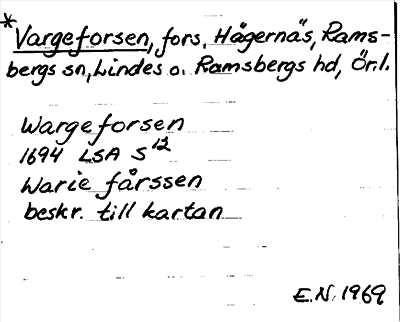 *Vargeforsen, fors, Hägernäs, Rams-
bergs sn, Lindes o. Ramsbergs hd, Ör.l.
Wargeforsen
1694 LSA S 12
Warie fårssen
beskr. till kartan
E.N. 1969